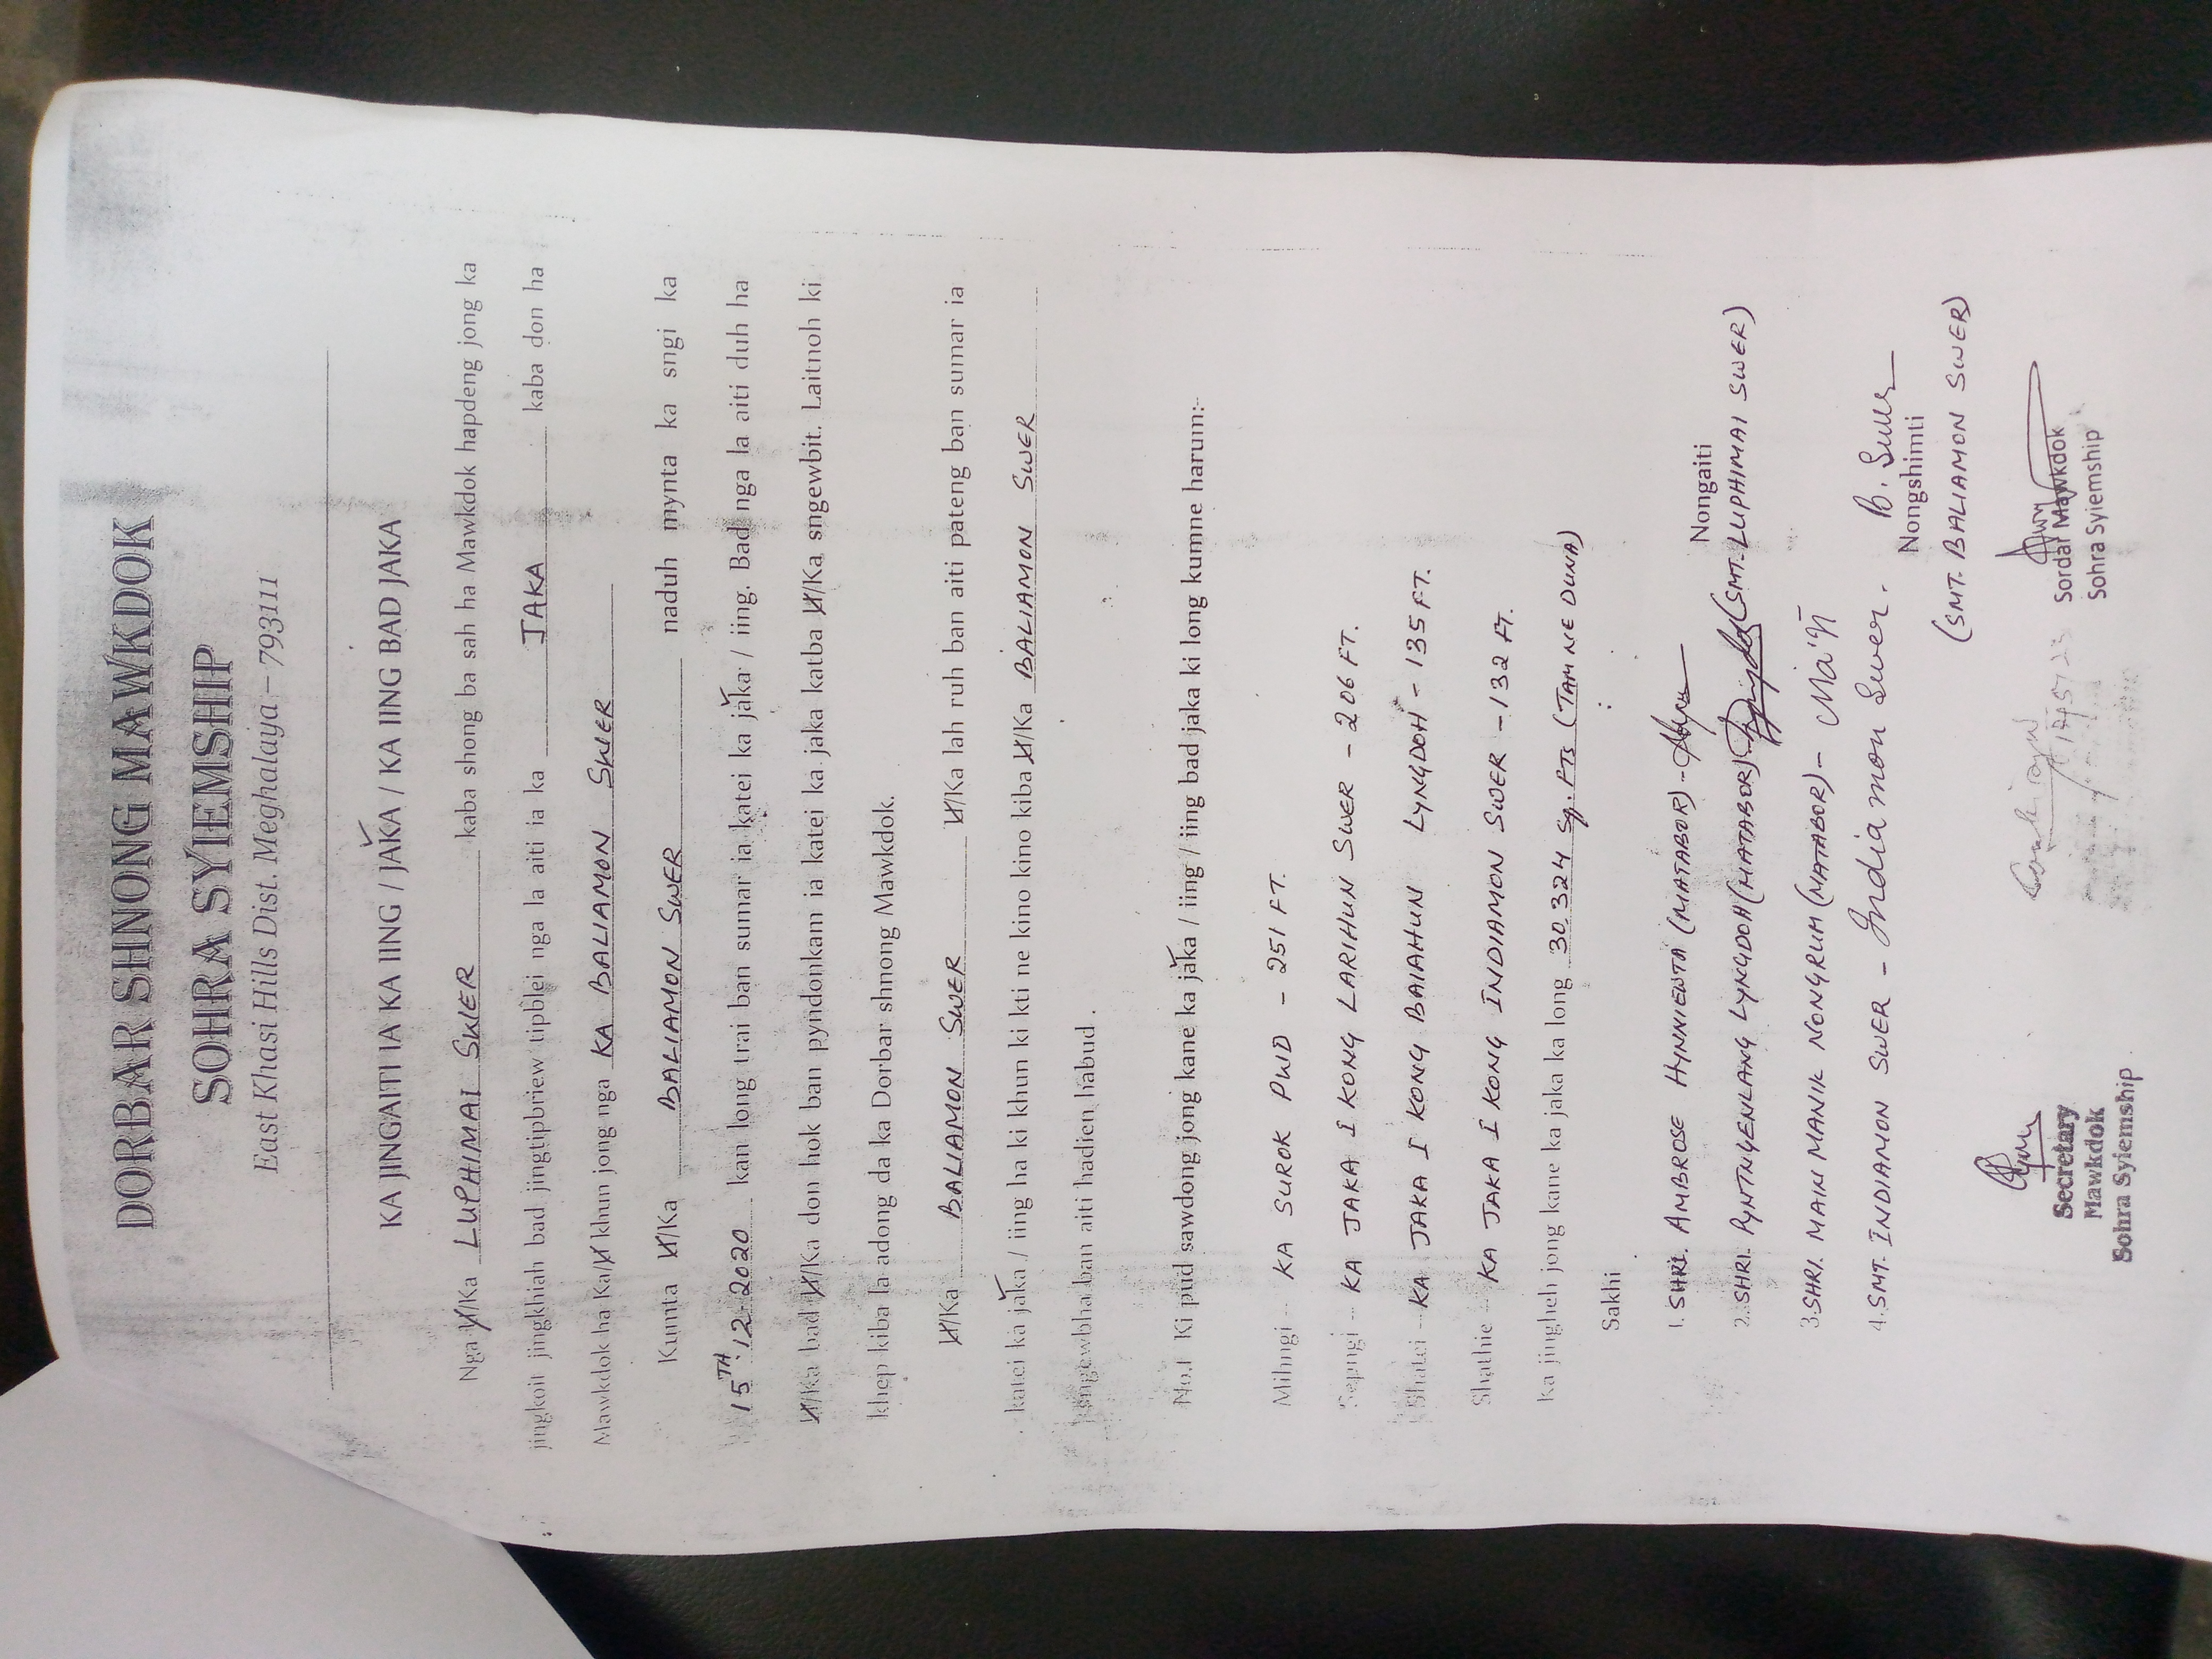 DORBAR SHNONG MAWKDOK
SOHRA SYIEMSHIP
East Khasi Hills Dist. Meghalaya – 793111
KA JINGAITI IA KA IING / JAKA / KA IING BAD JAKA
Nga U/Ka LUPHIMAI SWER kaba shong ba sah ha Mawkdok hapdeng jong ka
jingkoit jingkhiah bad jingtipbriew tipblei nga la aiti ia ka JAKA kaba don ha
Mawkdok ha Ka/U khun jong nga KA BALIAMON SWER
Kumta U/Ka BALIAMON SWER naduh mynta ka sngi ka
15TH.12.2020 kan long trai ban sumar ia katei ka jaka / iing. Bad nga la aiti duh ha
U/Ka bad U/Ka don hok ban pyndonkam ia katei ka jaka katba U/Ka sngewbit. Laitnoh ki
khep kiba la adong da ka Dorbar shnong Mawkdok.
U/Ka BALIAMON SWER U/Ka lah ruh ban aiti pateng ban sumar ia
katei ka jaka / iing ha ki khun ki kti ne kino kino kiba U/Ka BALIAMON SWER
sngewbha ban aiti hadien habud.
No.1 Ki pud sawdong jong kane ka jaka / iing / iing bad jaka ki long kumne harum:-
Mihngi -- KA SUROK PWD - 251 FT.
Sepngi -- KA JAKA I KONG LARIHUN SWER - 206 FT.
Shatei -- KA JAKA I KONG BAIAHUN LYNGDOH - 135 FT.
Shathie -- KA JAKA I KONG INDIAMON SWER - 132 FT.
Ka jingheh jong kane ka jaka ka long 30324 Sq. FTs (TAM NE DUNA)
Sakhi
1. SHRI. AMBROSE HYNNIEWTA (MATABOR) -
Nongaiti
2. SHRI. PYNTNGENLANG LYNGDOH (MATABOR) (SMT. LUPHIMAI SWER)
3. SHRI. MAIN MANIK NONGRUM (MATABOR) -
4. SMT. INDIAMON SWER - Indiamon Swer.
B. Swer
Nongshimti
(SMT. BALIAMON SWER)
Secretary
Mawkdok
Sohra Syiemship
Sordar Mawkdok
Sohra Syiemship